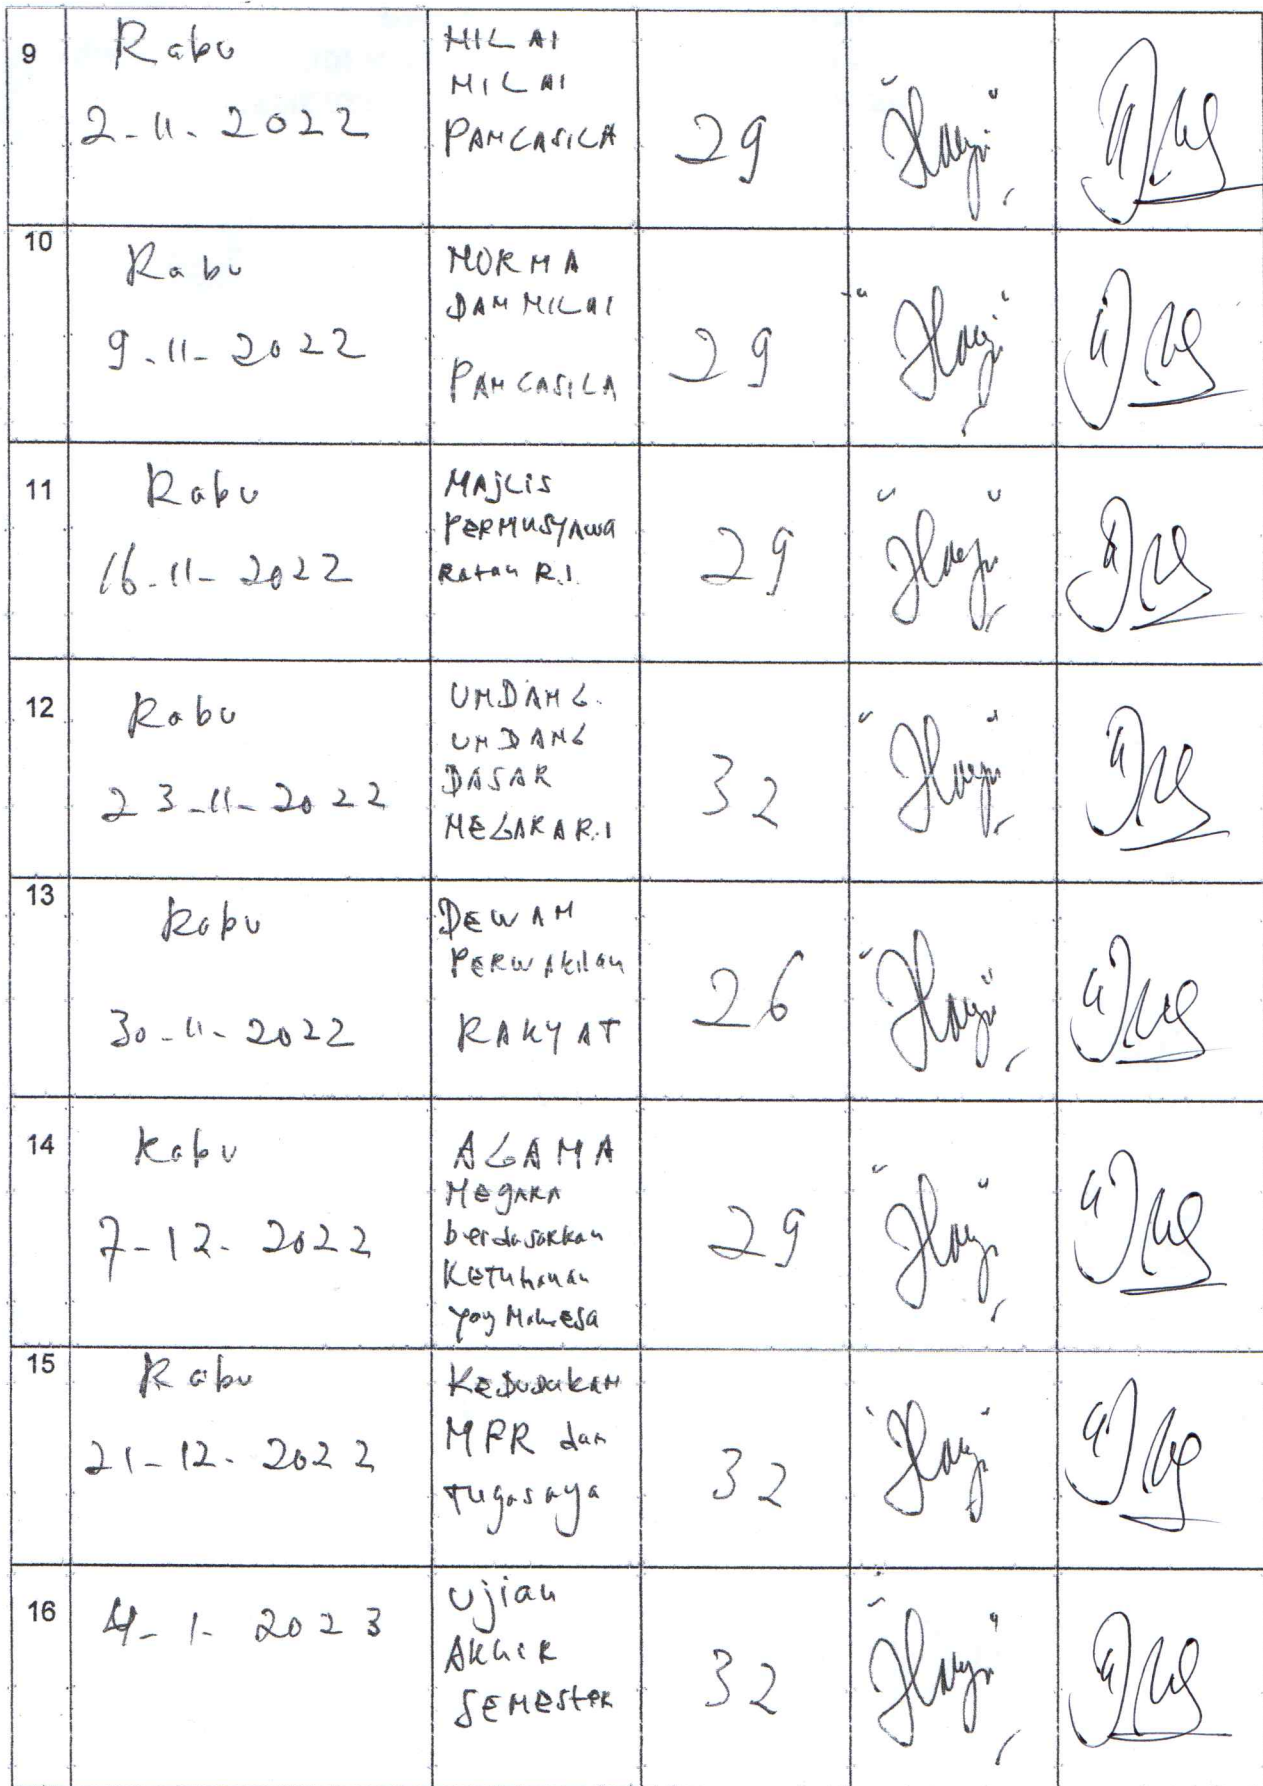 9
Rabu
2-11-2022
NILAI
NILAI
PANCASILA
29
10
Rabu
9-11-2022
NORMA
DAN NILAI
PANCASILA
29
11
Rabu
16-11-2022
MAJLIS
PERMUSYAWA
Ratan R.I.
29
12
Rabu
23-11-2022
UNDANG.
UNDANG
DASAR
NEGARA R.I
32
13
Rabu
30-11-2022
DEWAN
PERWAKilan
RAKYAT
26
14
Rabu
7-12-2022
AGAMA
NEGARA
berdasarkan
KETUhanan
yang Mahaesa
29
15
Rabu
21-12-2022
KEDUDUKAN
MPR dan
tugasnya
32
16
4-1-2023
Ujian
AKhiR
SEMEStER
32